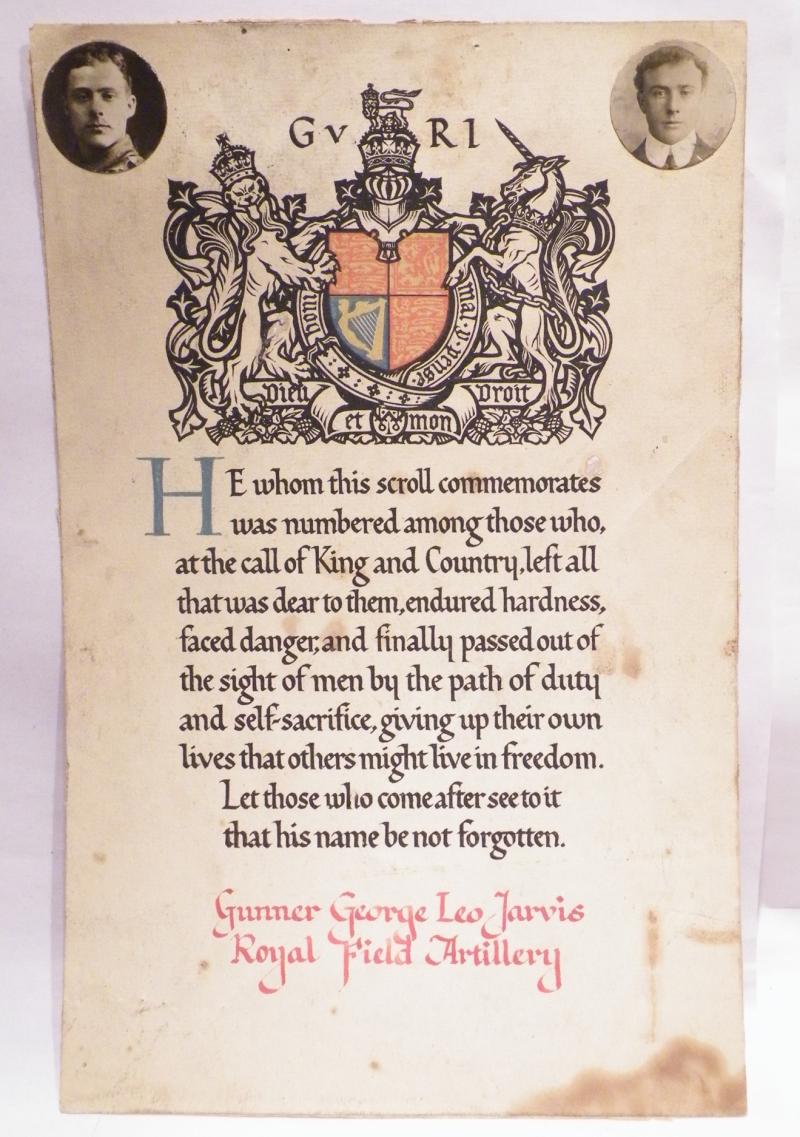 GV RI
Honi
mal·y·pense
Dieu
Droit
et mon
HE whom this scroll commemorates
was numbered among those who,
at the call of King and Country, left all
that was dear to them, endured hardness,
faced danger, and finally passed out of
the sight of men by the path of duty
and self-sacrifice, giving up their own
lives that others might live in freedom.
Let those who come after see to it
that his name be not forgotten.
Gunner George Leo Jarvis
Royal Field Artillery